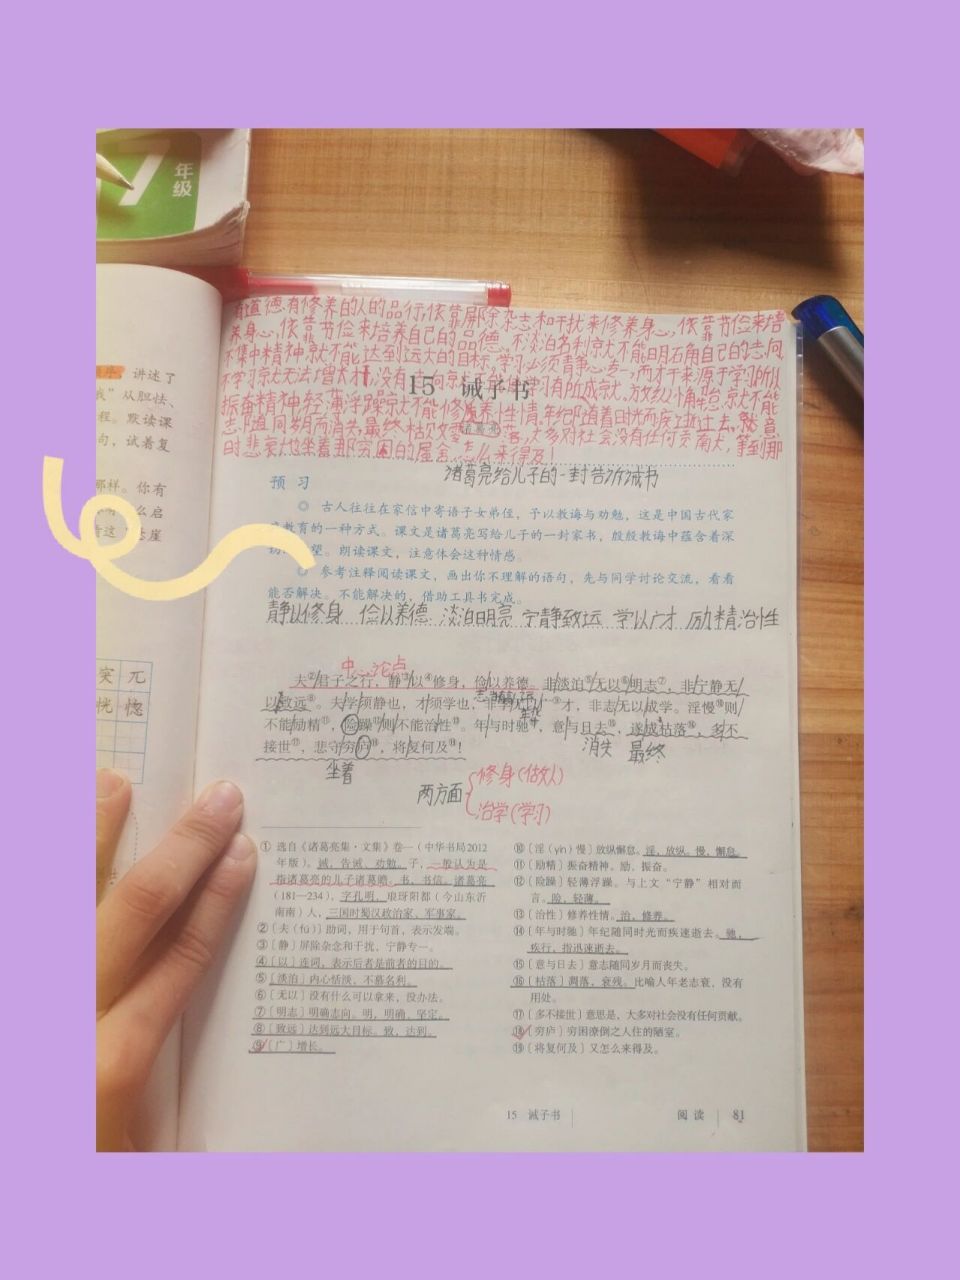 7年级
讲述了
从胆怯、
程。默读课
句，试着复
那样。你有
么启
悬崖
突 兀
恍 惚
有道德有修养的人的品行,依靠屏除杂志和干扰来修养身心,依靠节俭来培
养身心,依靠节俭来培养自己的品德。不淡泊名利京尤不能明确自己的志向,
不集中精神就不能达到远大的目标。学习必须青静心专一,而才干来源于学习所以
不学习京尤无法增长才干,没有志向京尤不能使学习有所成就。放纵懈怠京尤不能
振奋精神,轻薄浮躁京尤不能修养性情。年纪随着时光而疾速逝去,意
志随同岁月而消失,最终枯败零落,大多对社会没有任何贡献,等到那
时悲哀地坐着那穷困的屋舍,怎么来得及!
15 诫子书
诸葛亮
诸葛亮给儿子的一封告诉诫书
预 习
◎ 古人往往在家信中寄语子女弟侄，予以教诲与劝勉，这是中国古代家
庭教育的一种方式。课文是诸葛亮写给儿子的一封家书，殷殷教诲中蕴含着深
切 望。朗读课文，注意体会这种情感。
◎ 参考注释阅读课文，画出你不理解的语句，先与同学讨论交流，看看
能否解决。不能解决的，借助工具书完成。
静以修身 俭以养德 淡泊明亮 宁静致远 学以广才 励精治性
中心论点
夫②君子之行，静③以④修身，俭以养德。非淡泊⑤无以⑥明志⑦，非宁静无
以致远⑧。夫学须静也，才须学也，非学无以广⑨才，非志无以成学。淫慢⑩则
不能励精⑪，险躁⑫则不能治性⑬。年与时驰⑭，意与日去⑮，遂成枯落⑯，多不
接世⑰，悲守穷庐⑱，将复何及⑲！
消失 最终
坐着
两方面
修身(做人)
治学(学习)
① 选自《诸葛亮集·文集》卷一（中华书局2012
年版）。诫，告诫、劝勉。子，一般认为是
指诸葛亮的儿子诸葛瞻。书，书信。诸葛亮
（181—234），字孔明，琅琊阳都（今山东沂
南南）人，三国时蜀汉政治家、军事家。
②〔夫（fú）〕助词，用于句首，表示发端。
③〔静〕屏除杂念和干扰，宁静专一。
④〔以〕连词，表示后者是前者的目的。
⑤〔淡泊〕内心恬淡，不慕名利。
⑥〔无以〕没有什么可以拿来，没办法。
⑦〔明志〕明确志向。明，明确、坚定。
⑧〔致远〕达到远大目标。致，达到。
⑨〔广〕增长。
⑩〔淫（yín）慢〕放纵懈怠。淫，放纵。慢，懈怠。
⑪〔励精〕振奋精神。励，振奋。
⑫〔险躁〕轻薄浮躁。与上文“宁静”相对而
言。险，轻薄。
⑬〔治性〕修养性情。治，修养。
⑭〔年与时驰〕年纪随同时光而疾速逝去。驰，
疾行，指迅速逝去。
⑮〔意与日去〕意志随同岁月而丧失。
⑯〔枯落〕凋落，衰残。比喻人年老志衰，没有
用处。
⑰〔多不接世〕意思是，大多对社会没有任何贡献。
⑱〔穷庐〕穷困潦倒之人住的陋室。
⑲〔将复何及〕又怎么来得及。
15 诫子书 阅 读 81